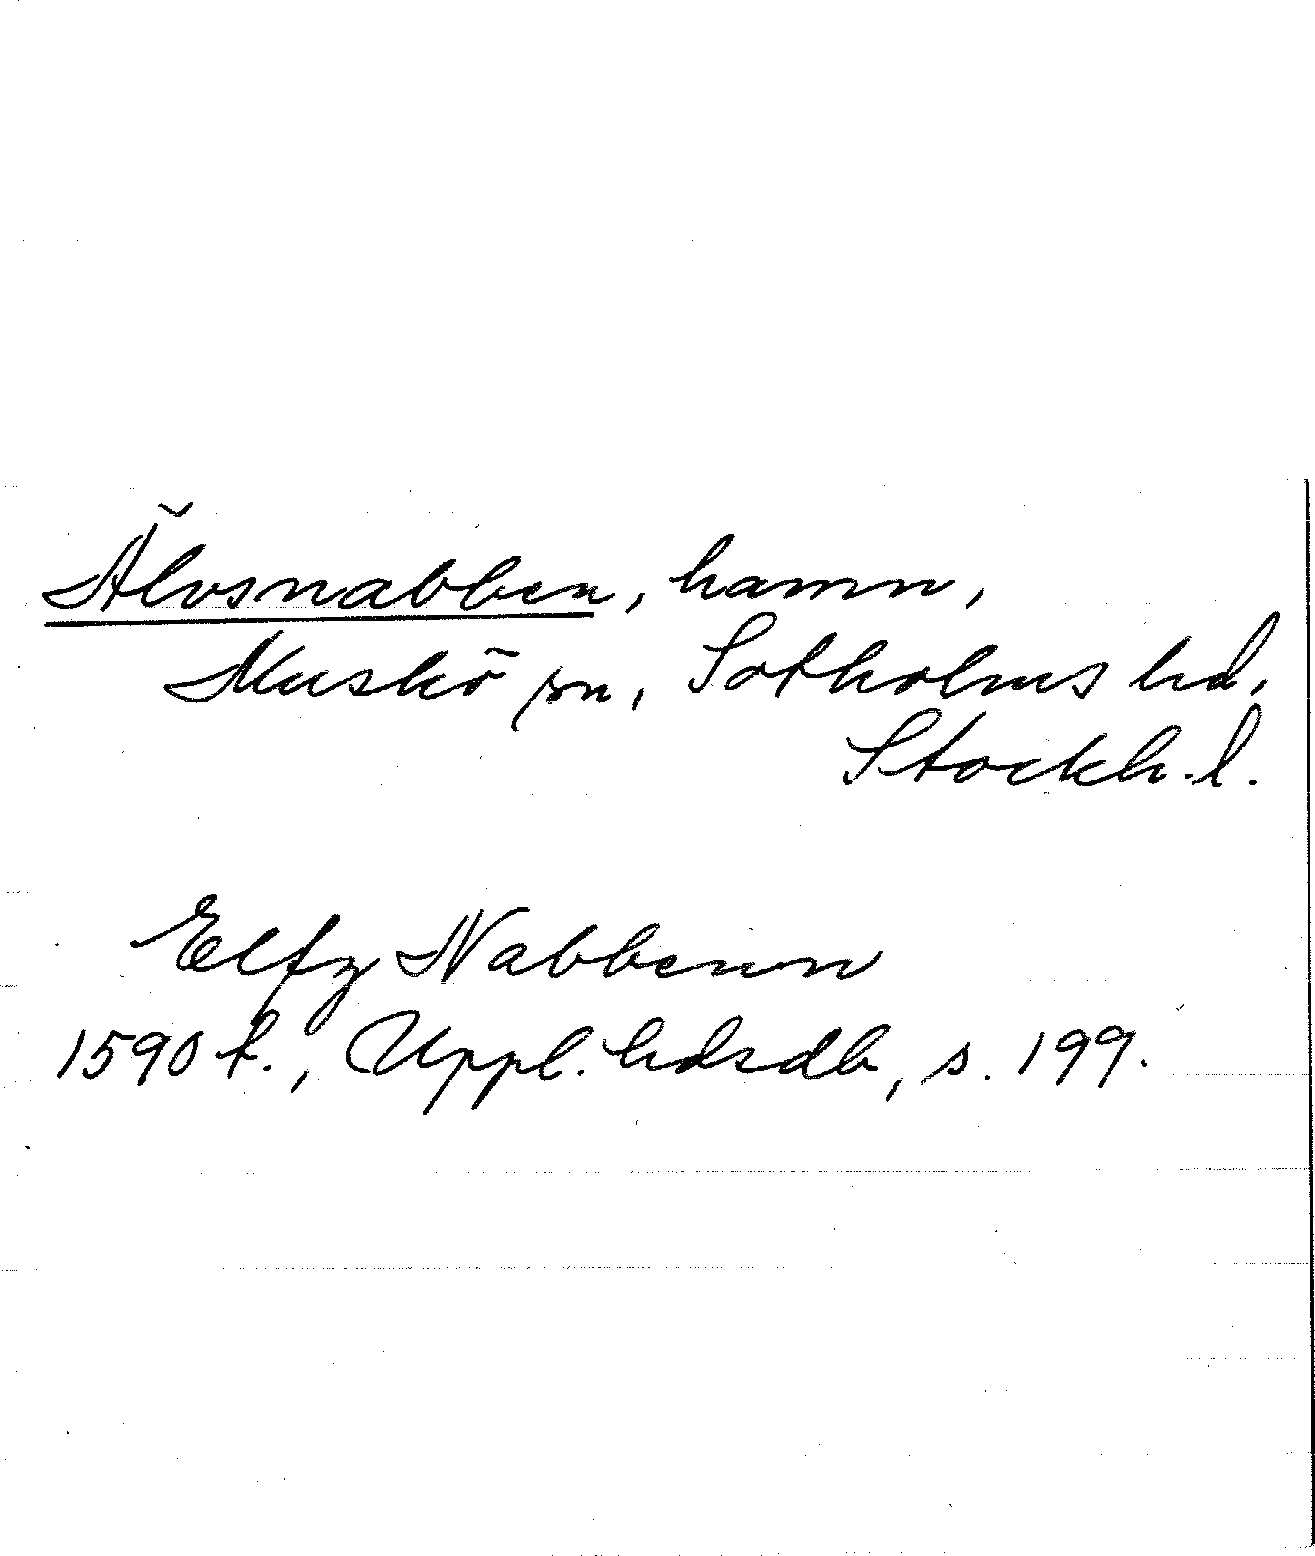 Älvsnabben, hamn,
Muskö sn, Sotholms hd,
Stockh. l.
Elfz Nabbenn
1590 t., Uppl. hdsdb, s. 199.